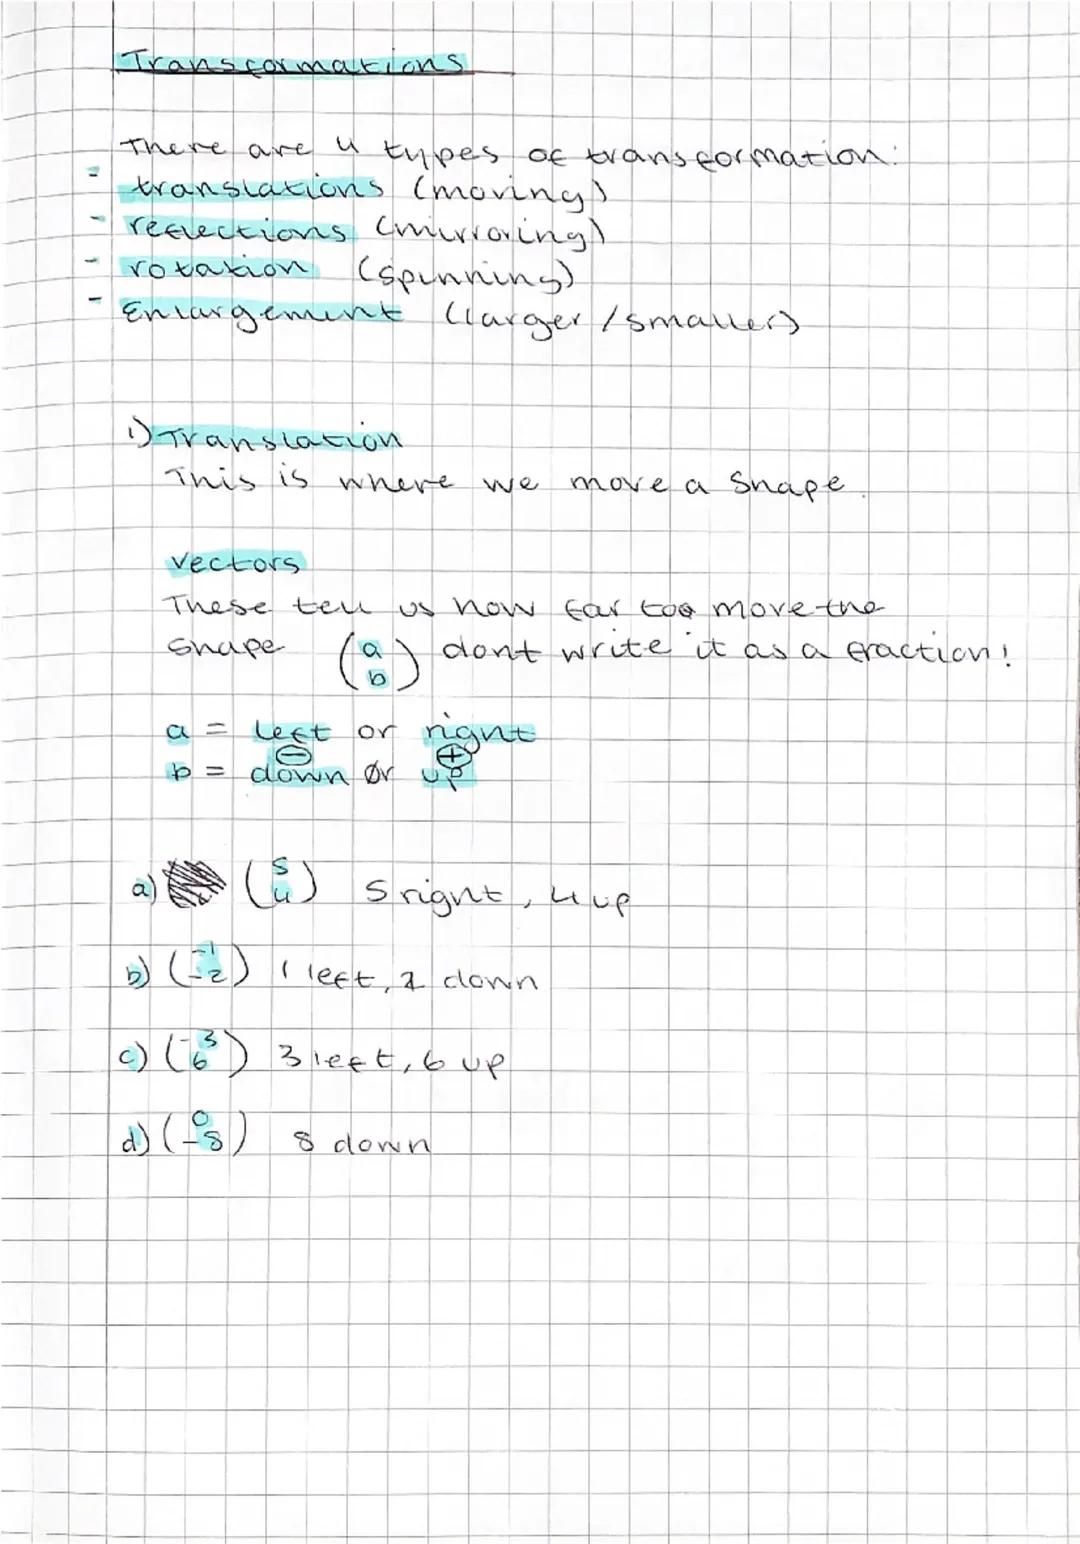 Transformations
There are 4 types of transformation:
- translations (moving)
- reflections (mirroring)
- rotation (spinning)
- Enlargement (larger/smaller)
1) Translation
This is where we move a shape.
Vectors
These tell us how far too move the
shape (a b) dont write it as a fraction!
a = left or right
⊖ ⊕
b = down or up
a) (5 4) 5 right, 4 up
b) (-1 -2) 1 left, 2 down
c) (-3 6) 3 left, 6 up
d) (0 -8) 8 down